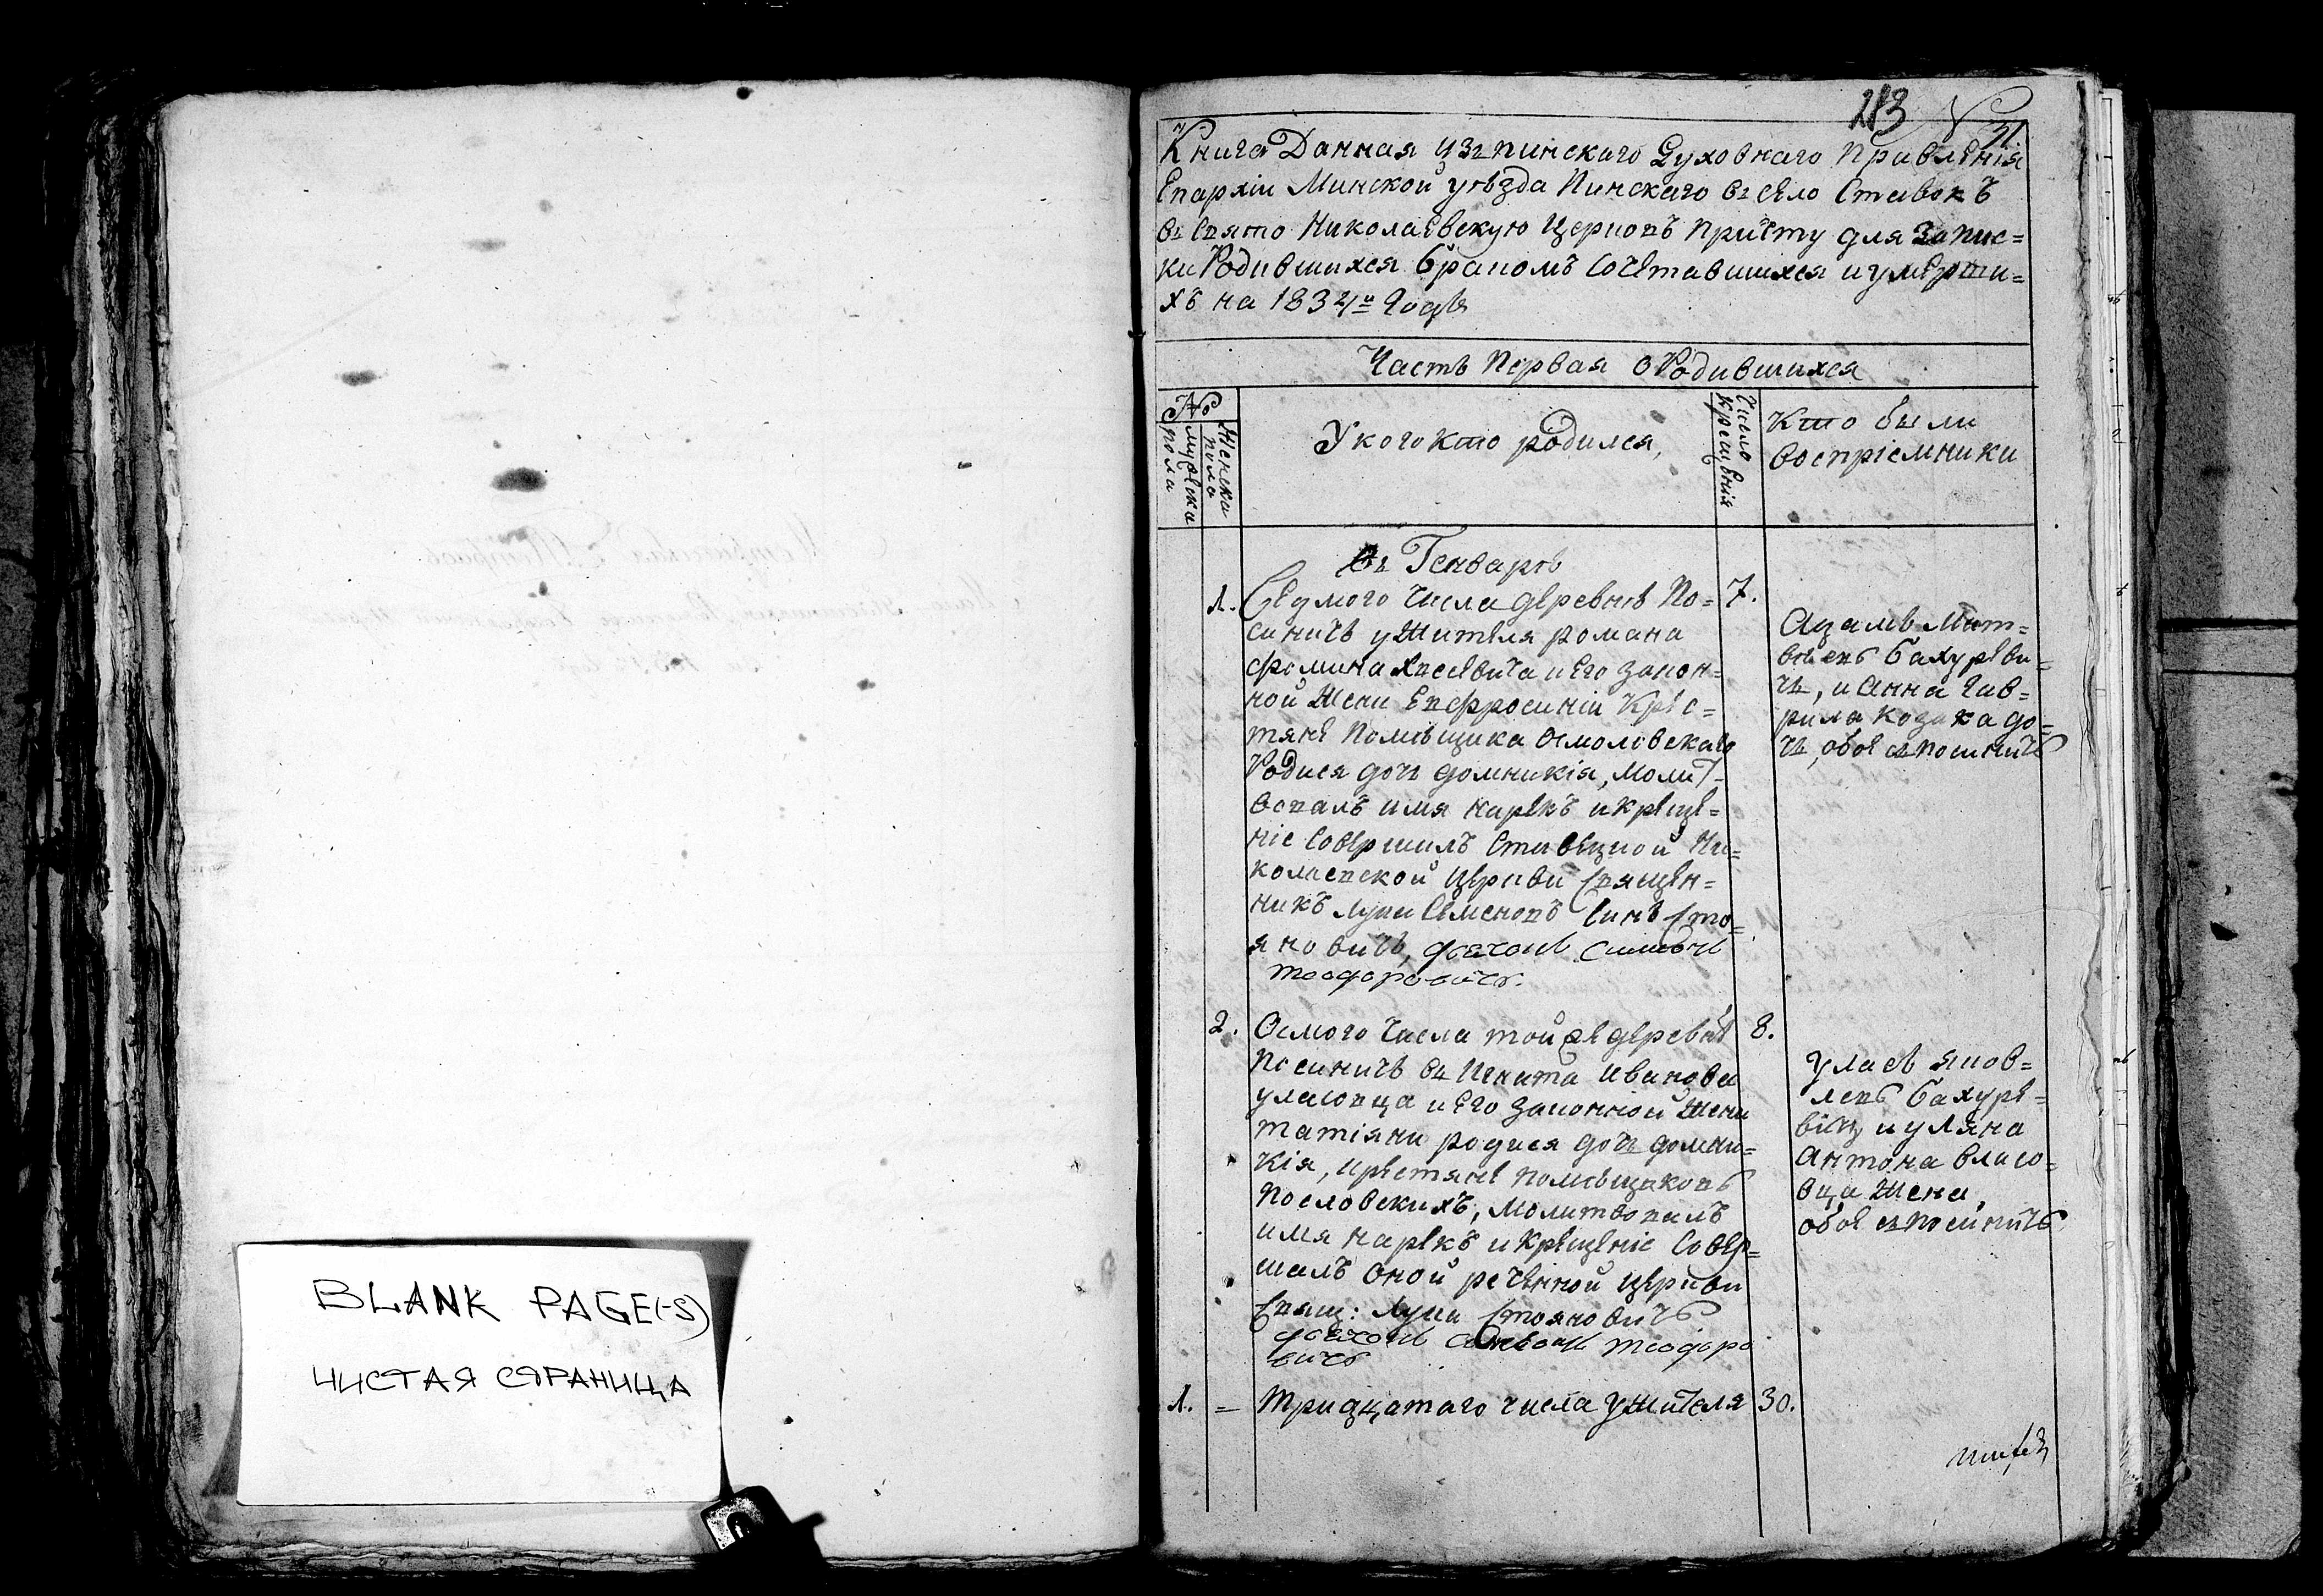 BLANK PAGE(-S)
ЧИСТАЯ СТРАНИЦА
213
Книга Данная изъ пинскаго Духовнаго Правленія
Епархіи Минской уѣзда Пинскаго въ село Ставокъ
въ Свято Николаевскую Церковъ Причту для Запис=
ки Родившихся бракомъ Сочетавшихся и умерши=
хъ на 1834й Годъ
Часть Первая о Родившихся
№
мужеска пола
Женска пола
У кого кто родился,
Число крещенія
Кто были
воспріемники
Въ Генварѣ
1.
Седмого Числа деревнѣ По=
7.
синичъ у Жителя романа
фомина и Его закон=
ной Жени Евфросиніи Крес=
тянѣ Помѣщика
Родися дочъ домникія, Молит=
вовалъ имя нарекъ и креще=
ніе Совершилъ Ставецкой Ни=
колаевской Церкви Священ=
никъ Лука Семеновъ Синъ Сто=
яновичъ, дячокъ Симеонъ
теодоровичъ.
Адамъ Мат=
вѣевъ бахуреви=
чъ, и Анна Гав=
рила козака до=
чъ, обое съ посиничъ
2.
Осмого Числа той же деревнѣ
8.
Посиничъ въ Игната Иванова
уласовца и Его Законной Жени
татіяни родися дочъ домни=
кія, крестянѣ помѣщиковъ
Пословскихъ, Молитвовалъ
имя нарекъ и Крещеніе Совер=
шалъ Оной реченной Церкви
Свящ: Лука Стояновичъ
дячокъ Симеонъ теодоро
вичъ
уласъ яков=
левъ бахуре=
вічъ и уляна
Антона власо=
вца Жена,
обое съ посиничъ
1. = Тридцатаго числа у Жителя 30.